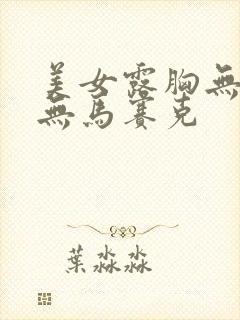 美女露胸無
無馬賽克
葉淼淼